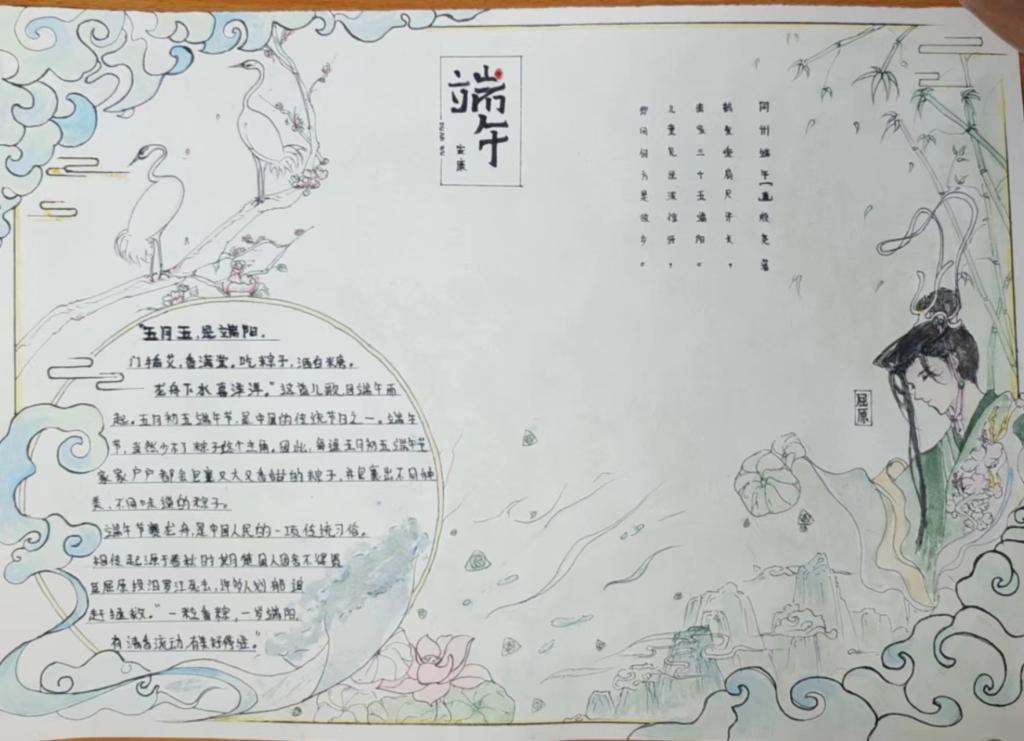 端午
安康
同州端午【唐】殷尧藩
鹤发垂肩尺许长，
离家三十五端阳。
儿童见说深惊讶，
却问何方是故乡。
"五月五，是端阳。
门插艾，香满堂。吃粽子，洒白糖。
龙舟下水喜洋洋。"这首儿歌，因端午而
起。五月初五端午节，是中国的传统节日之一。端午
节，当然少不了粽子这个主角。因此，每逢五月初五端午节
家家户户都会包裹又大又香甜的粽子，并包裹出不同种
类、不同味道的粽子。
端午节赛龙舟，是中国人民的一项传统习俗。
相传起源于春秋时期楚国人因舍不得贤
臣屈原投汨罗江死去，许多人划船追
赶拯救。"一粒香粽，一岁端阳，
有清香流动，有美好停驻"
屈原